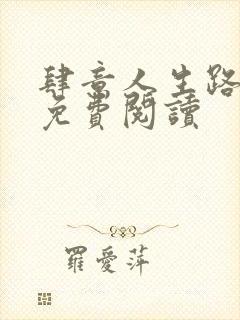 肆意人生路
免費閱讀
羅愛萍